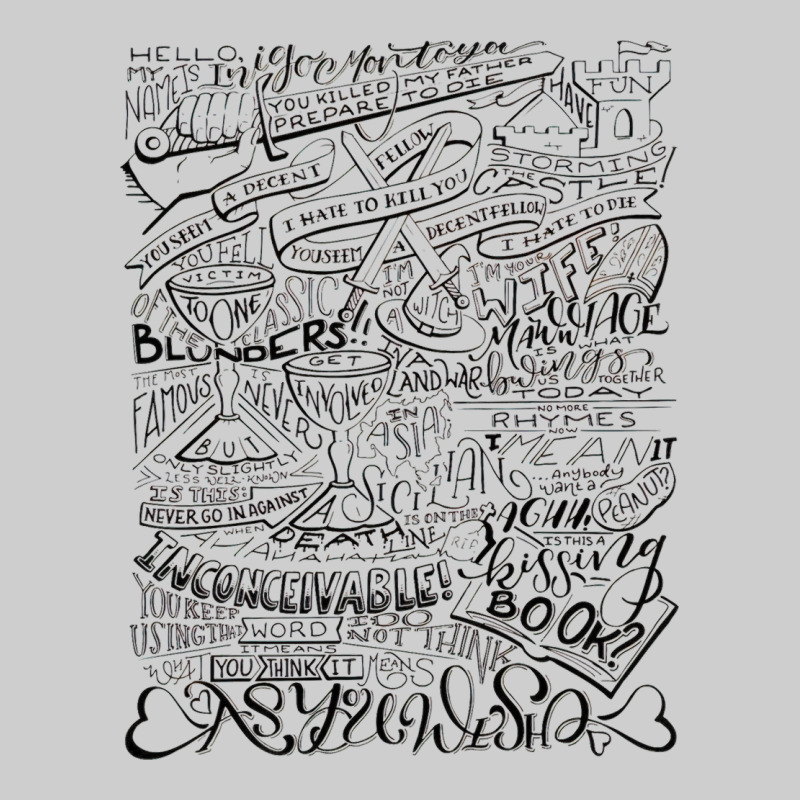 HELLO,
MY NAME IS Inigo Montoya
YOU KILLED MY FATHER
PREPARE TO DIE
HAVE FUN
STORMING
THE
CASTLE!
YOU SEEM A DECENT FELLOW
I HATE TO KILL YOU
YOU SEEM A DECENT FELLOW
I HATE TO DIE
YOU FELL
VICTIM
TO ONE
OF THE CLASSIC
BLUNDERS!!
I'M
NOT
A WITCH
I'M YOUR
WIFE!
MAWWIAGE
IS WHAT
bwings
US TOGETHER
TODAY
THE MOST
FAMOUS IS NEVER
GET
INVOLVED
IN A LAND WAR
IN
ASIA
BUT
ONLY SLIGHTLY
LESS WELL-KNOWN
IS THIS:
NEVER GO IN AGAINST
A SICILIAN
WHEN
DEATH
IS ON THE
LINE
AHAHAHAHAHA
RIP
NO MORE
RHYMES
NOW
I MEAN IT
...Anybody
want a
PEANUT?
AGHH!
IS THIS A
kissing
BOOK?
INCONCEIVABLE!
YOU KEEP
USING THAT WORD
I DO
NOT THINK
IT MEANS
WHAT YOU THINK IT MEANS
AS YOU WISH